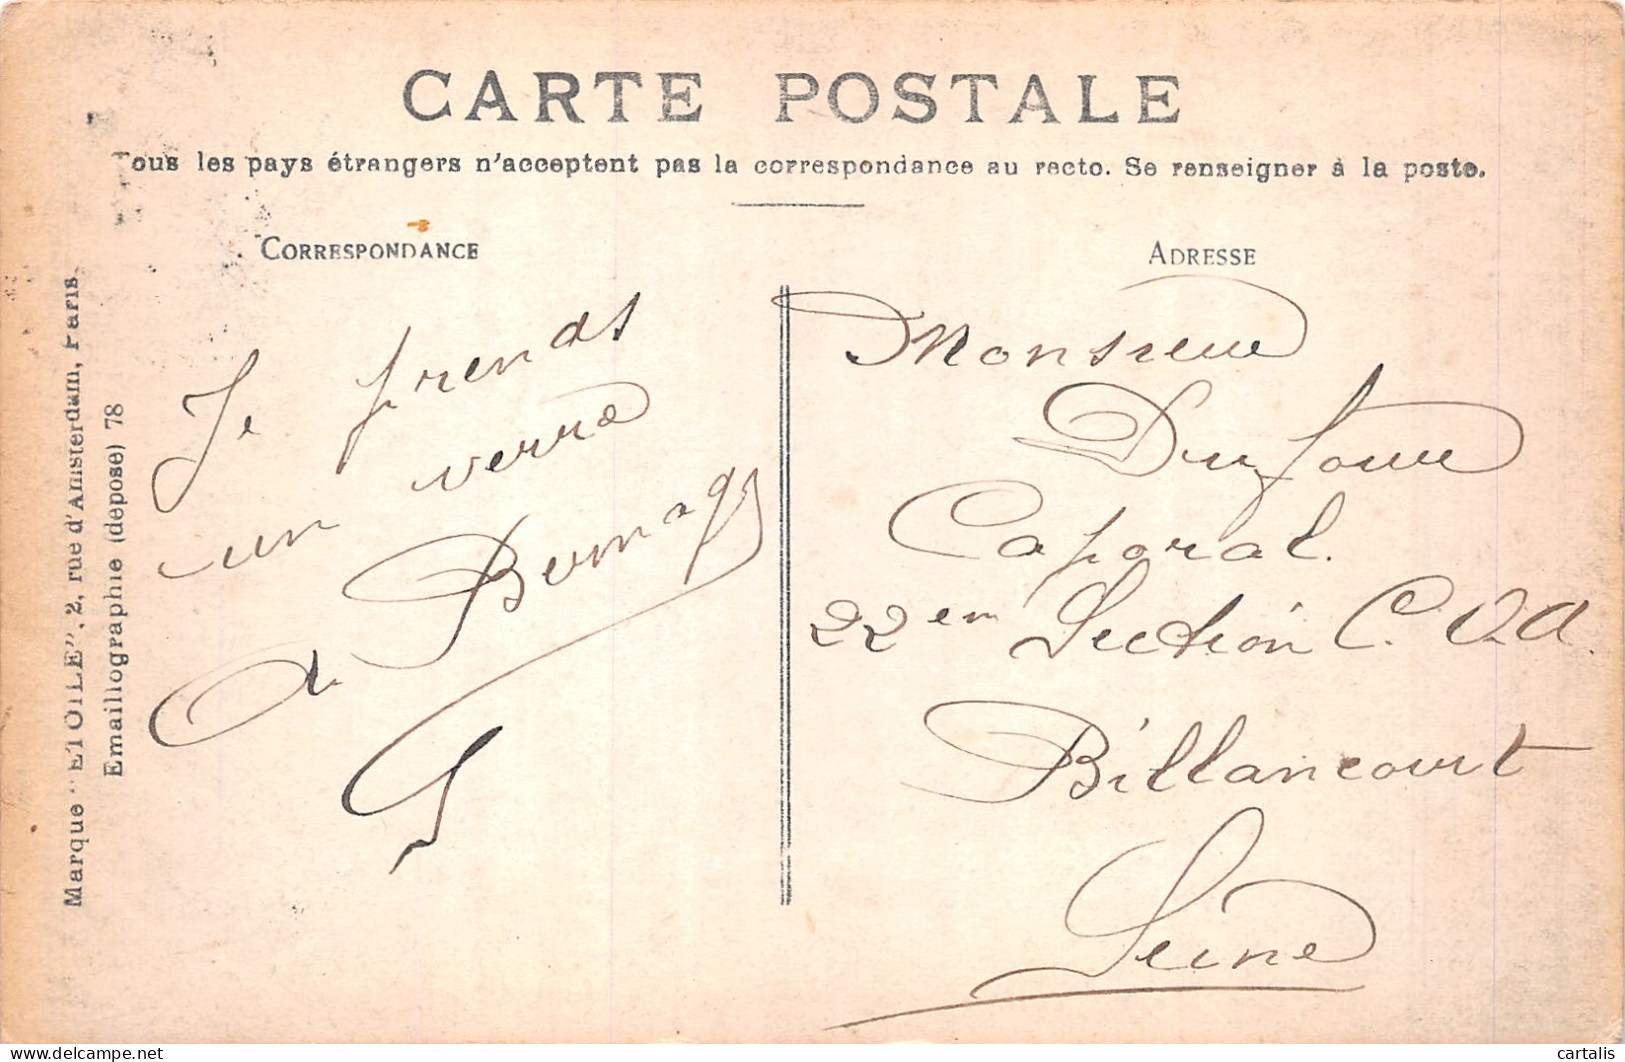 CARTE POSTALE
Tous les pays étrangers n'acceptent pas la correspondance au recto. Se renseigner à la poste.
CORRESPONDANCE
ADRESSE
Marque "ETOILE", 2, rue d'Amsterdam, Paris
Emaillographie (déposé) 78
Je prends
un verre
a
Monsieur
Dufour
Caporal.
22em Section C. O. A.
Billancourt
Seine
cartalis
delcampe.net